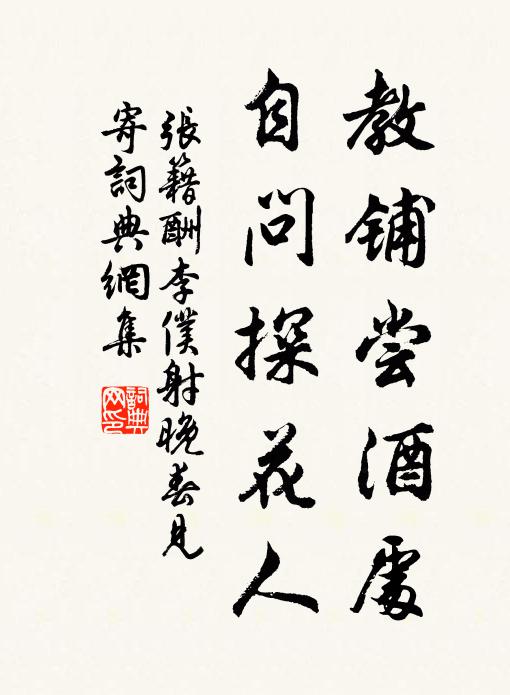 教铺尝酒處
自問探花人
張籍酬李僕射晚春見
寄詞典網集
詞典
网印